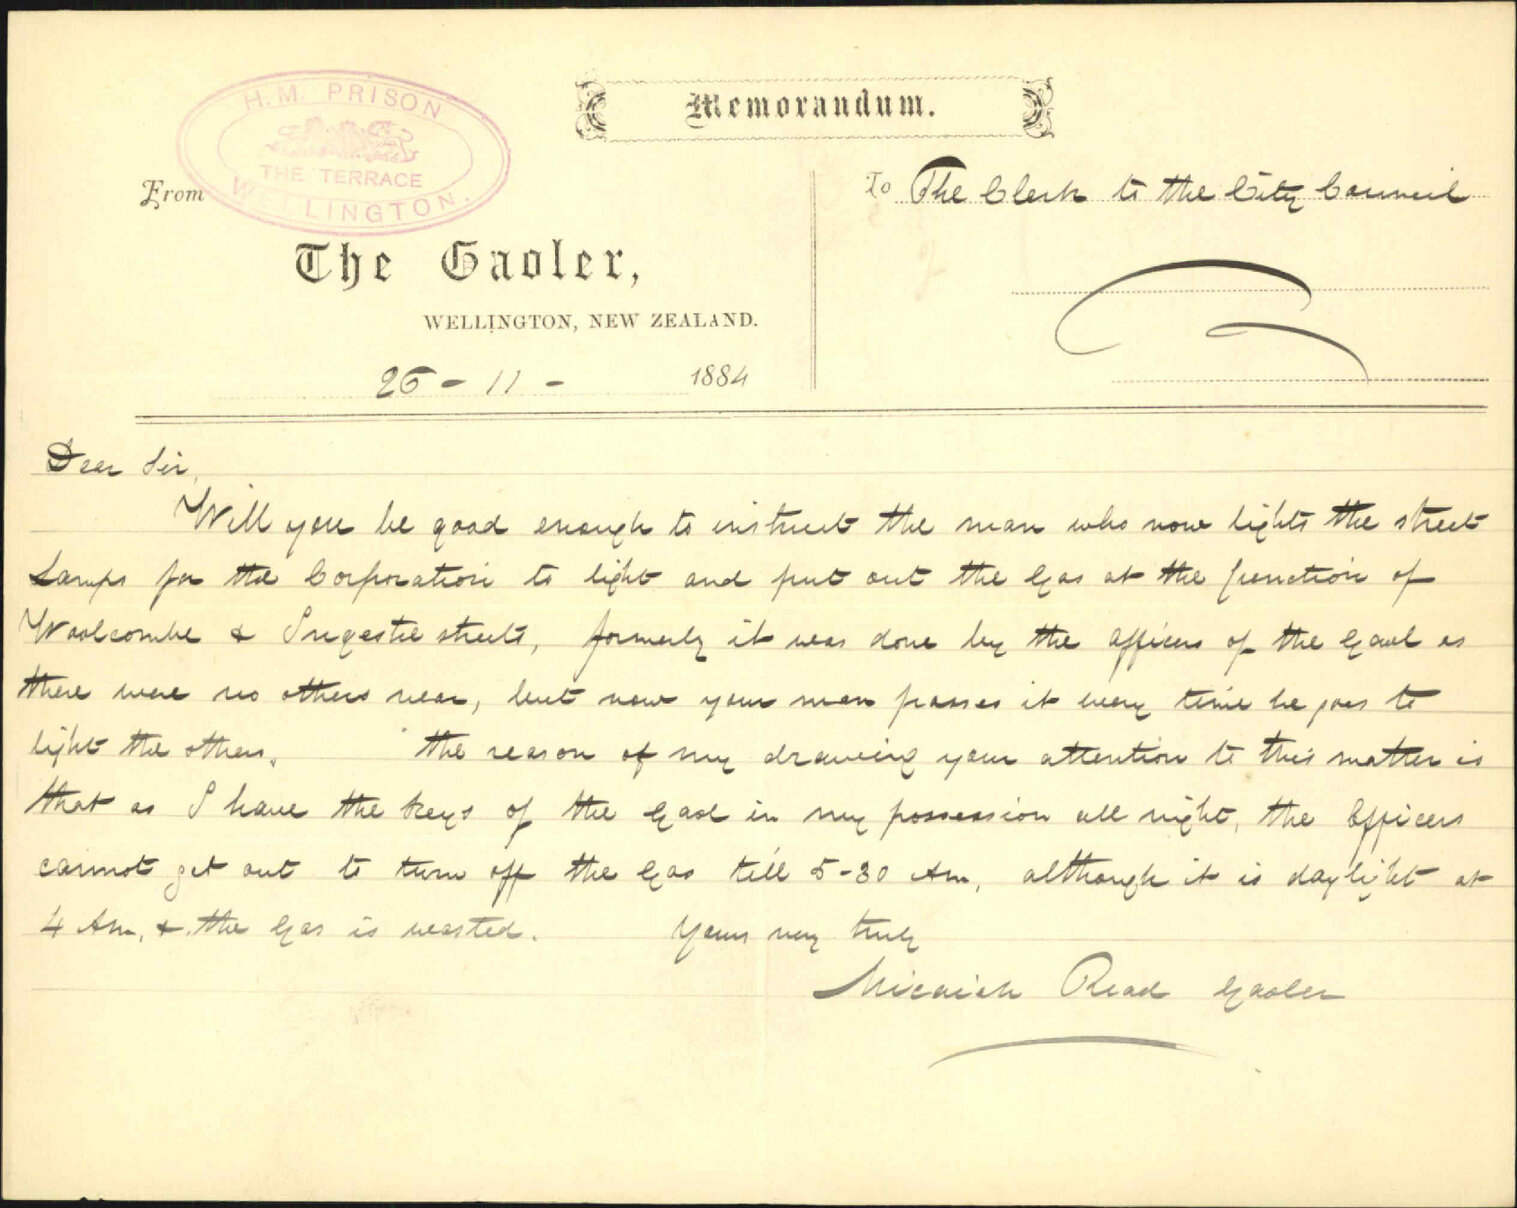 H.M. PRISON
THE TERRACE
WELLINGTON.
Memorandum.
From
To The Clerk to the City Council
The Gaoler,
WELLINGTON, NEW ZEALAND.
26 - 11 - 1884
Dear Sir,
Will you be good enough to instruct the man who now lights the street
Lamps for the Corporation to light and put out the Gas at the junction of
Woolcombe & Ingestre streets, formerly it was done by the Officers of the Gaol as
there were no others near, but now your man passes it every time he goes to
light the others. The reason of my drawing your attention to this matter is
that as I have the keys of the Gaol in my possession all night, the Officers
cannot get out to turn off the Gas till 5-30 Am, although it is daylight at
4 Am, & the Gas is wasted. Yours very truly
Micaiah Read Gaoler